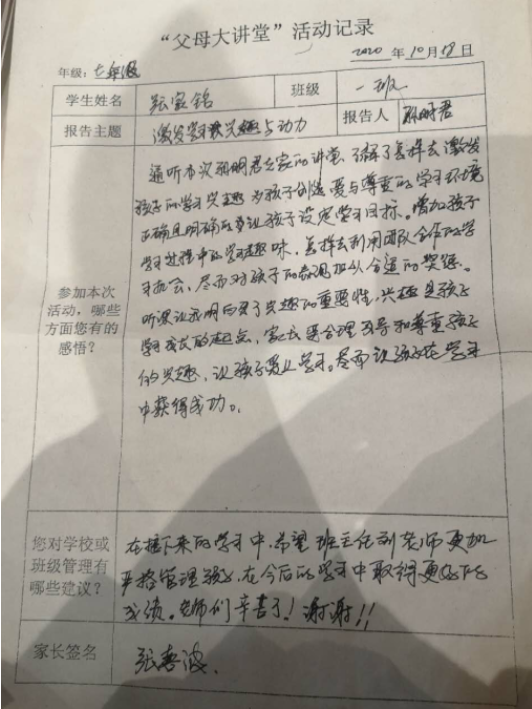 “父母大讲堂”活动记录
2020年10月18日
年级:七年级
学生姓名 张宸铭 班级 一班
报告主题 激发学习兴趣与动力 报告人 孙明君
参加本次活动,哪些方面您有的感悟?
通听本次孙明君专家的讲堂,了解了怎样去激发
孩子的学习兴趣,为孩子创造爱与尊重的学习环境
正确且明确的要让孩子设定学习目标。增加孩子
学习过程中的学习趣味,怎样去利用团队合作的学
习机会,尽而对孩子的表现加以合适的奖惩。
听课让我明白了兴趣的重要性,兴趣是孩子
学习成长的起点,家长要合理引导和尊重孩子
的兴趣,让孩子爱上学习。尽而让孩子在学习
中获得成功。
您对学校或班级管理有哪些建议?
在接下来的学习中,希望班主任刘老师更加
严格管理孩子,在今后的学习中取得更好的
成绩。老师们辛苦了!谢谢!!
家长签名 张春波.